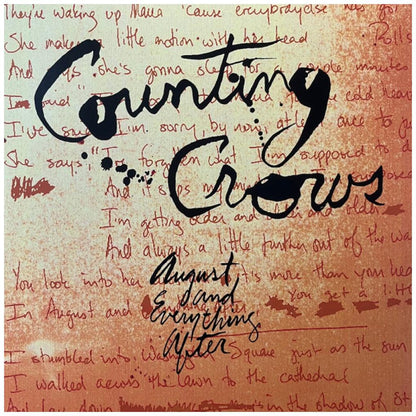 They're waking up Maria 'cause everybody else has got
She makes a little motion with her head
Rolls
And says she's gonna sleep for a couple minutes
Counting
I've I'm sorry, by now, at least once to
She says, I've forgotten what I'm supposed to d
Crows
And it slips my
I'm getting older and older and older
And always a little further out of the wa
You look into her it's more than your hea
August
and
Everything
After
In August and
You get a littl
I stumbled into Wa Square just as the sun
I walked across the lawn to the cathedral
And lay down in the shadow of St